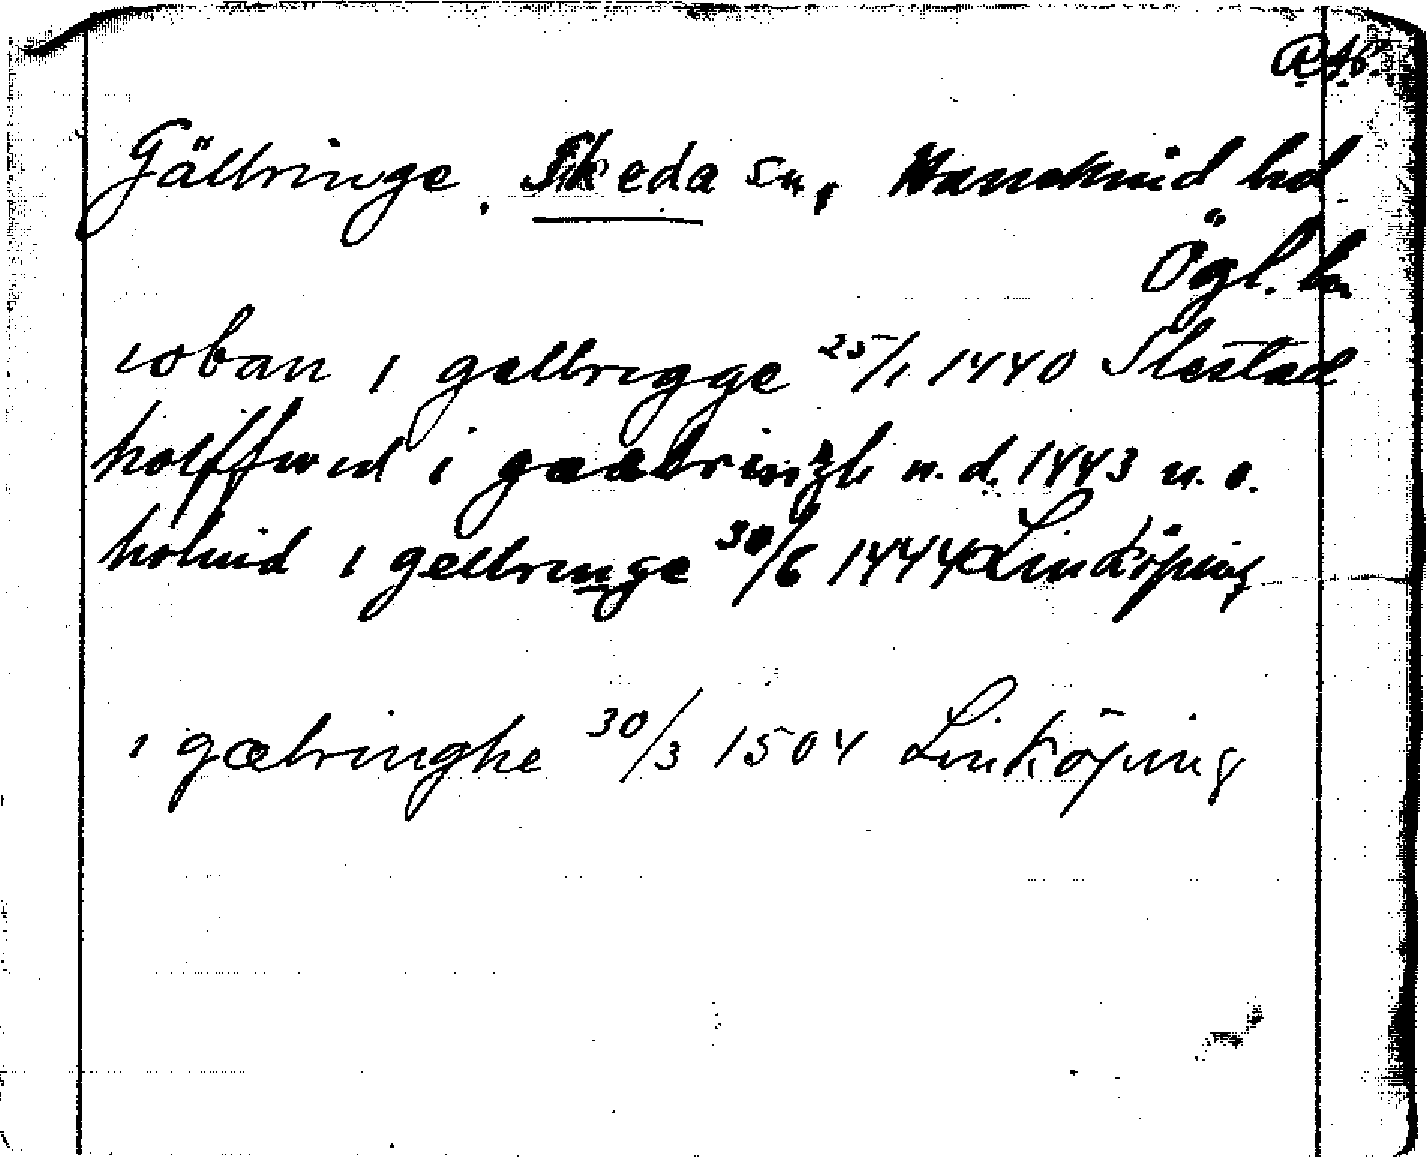 R.Ap.
Gälbringe, Skeda sn, Hanekind hd
Ögl. l.
ioban i gelbrigge 25/1 1440 Slestad
holffwed i gaebringh u.d. 1443 u.o.
holuid i gelbringe 30/6 1444 Linköping
i gælringhe 30/3 1504 Linköping